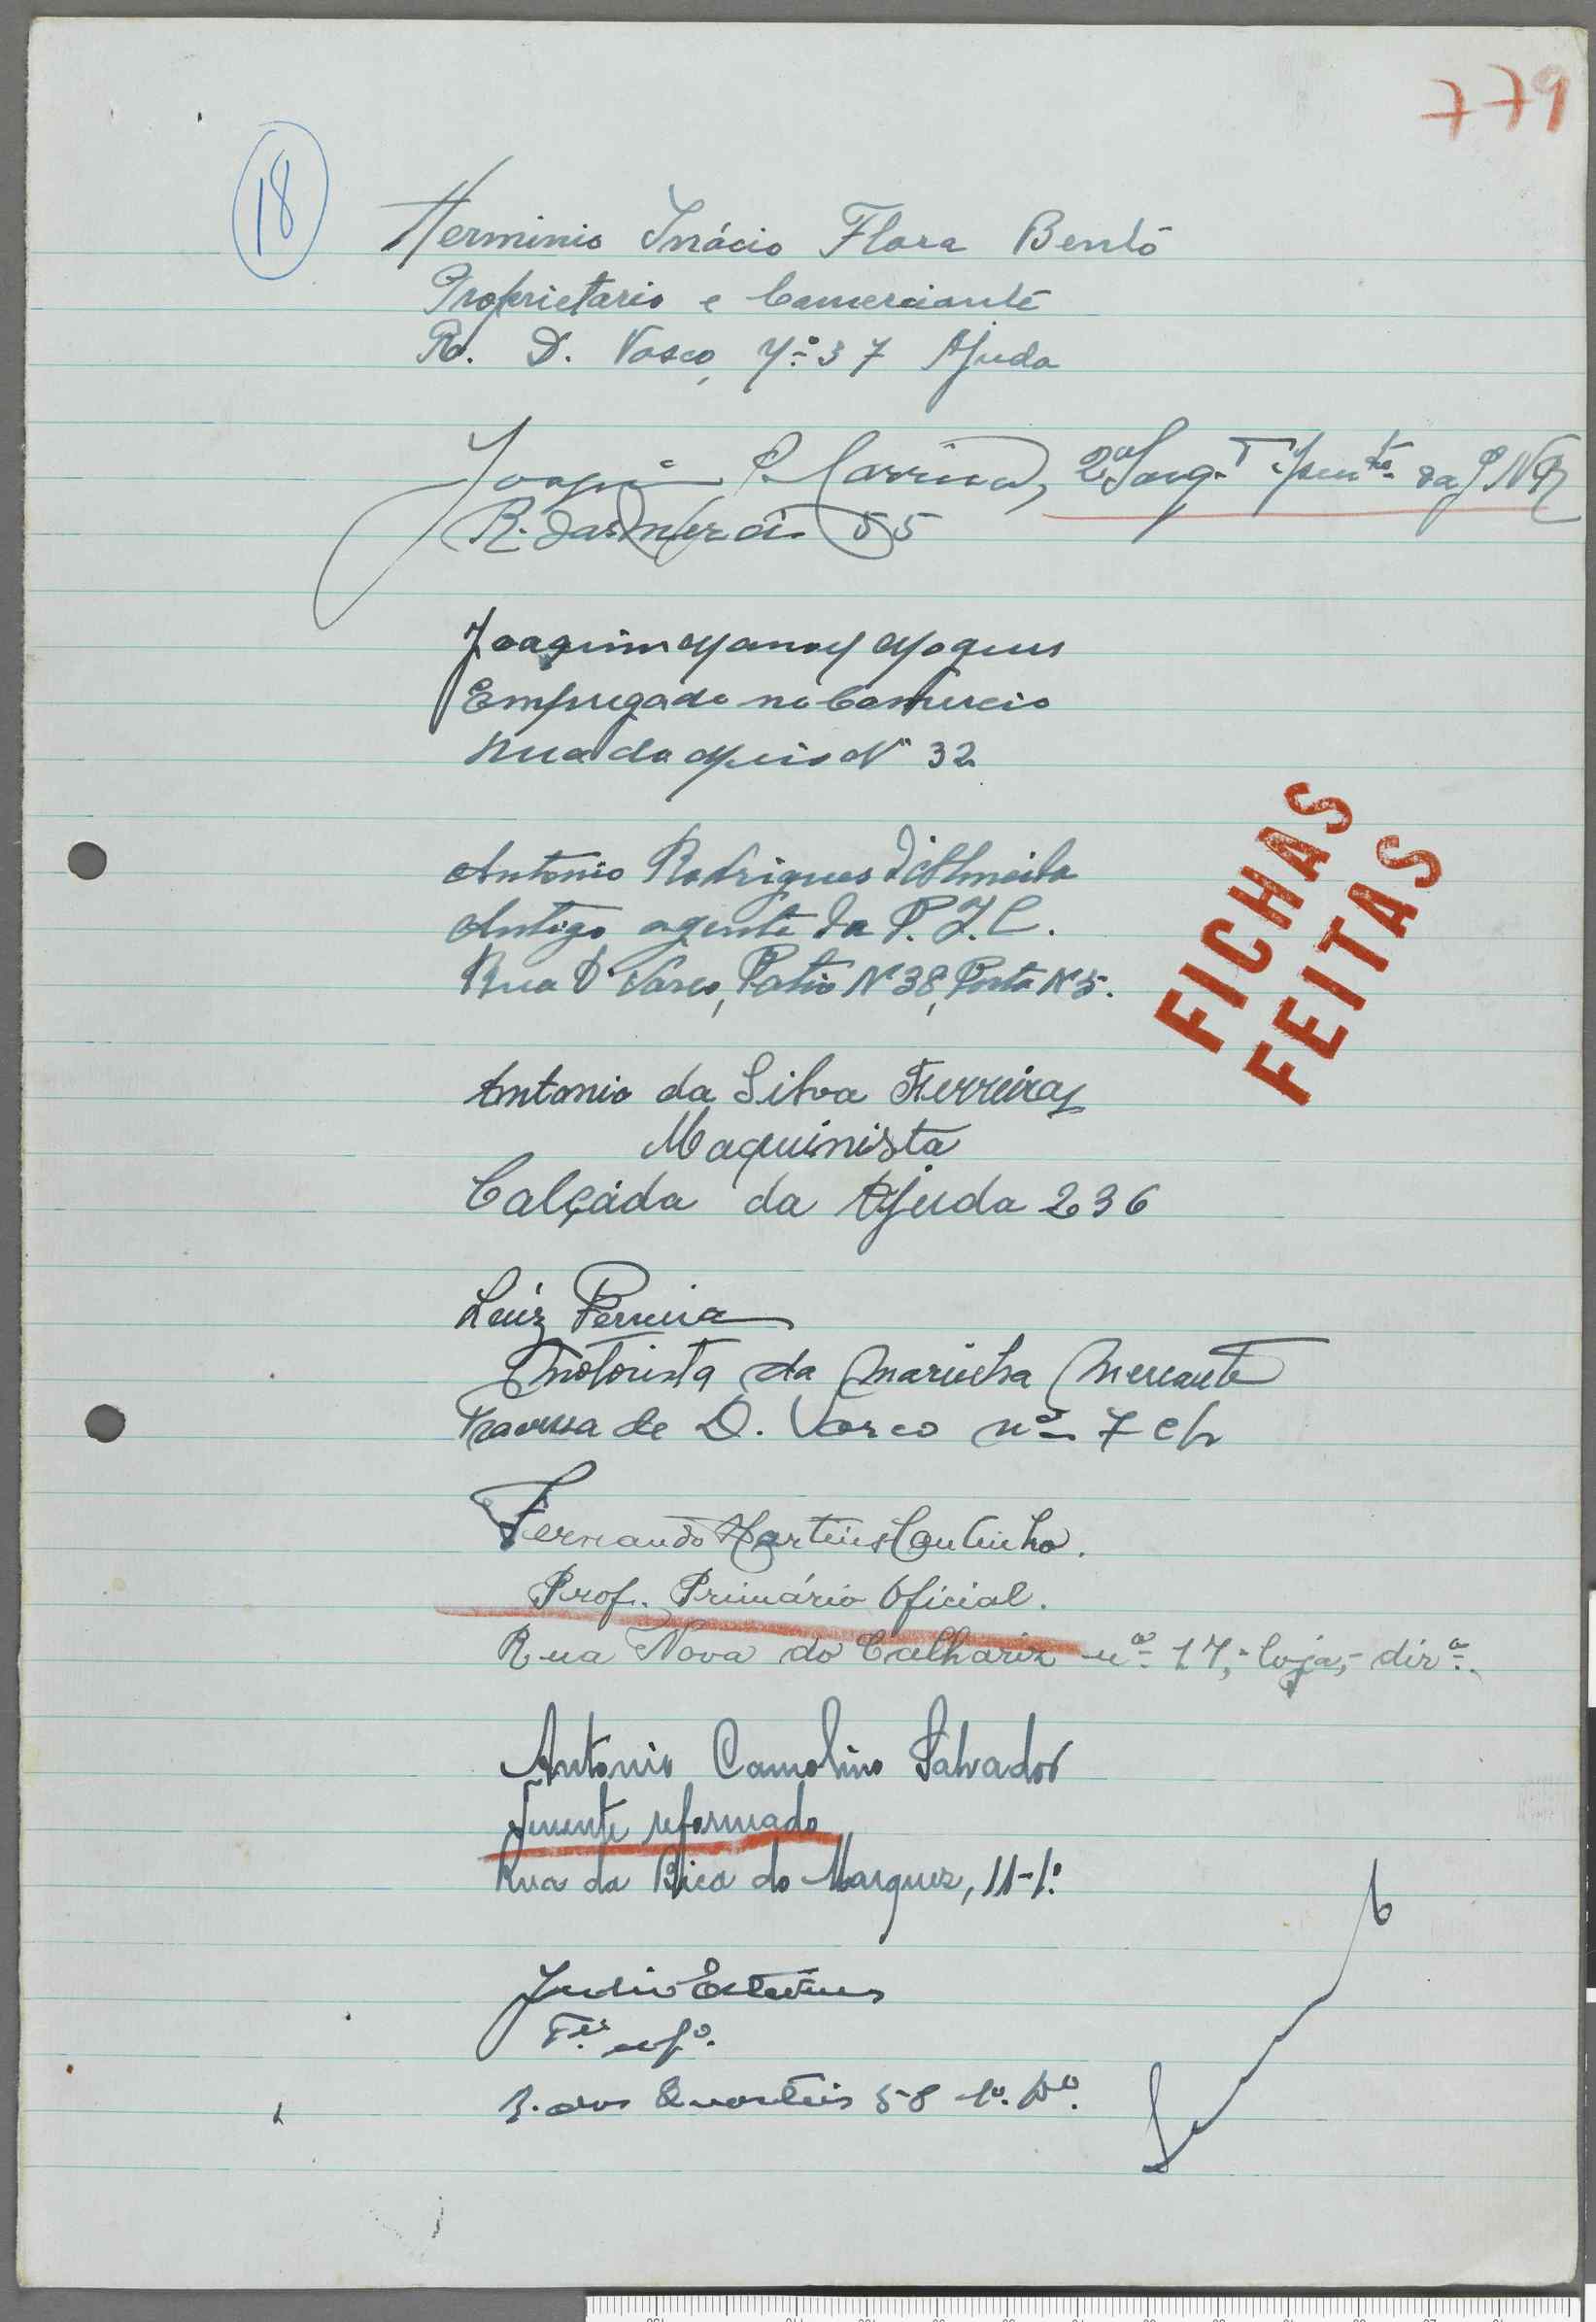 779
18
Herminio Inácio Flora Bentó
Proprietario e Comerciante
R. D. Vasco, nº 37 Ajuda
Joaquim P. 2º Sarg. da GNR
R. das 55
Joaquim
Empregado no Comercio
Rua do N 32
Antonio Rodrigues d'Almeida
Antigo agente da P.I.C.
Rua D. Vasco, Patio Nº 38, Porta Nº 5.
FICHAS
FEITAS
Antonio da Silva Ferreira
Maquinista
Calçáda da Ajuda 236
Luiz Pereira
Motorista da Marinha Mercante
Travessa de D. Vasco nº 7 c/v
Fernando Martins Coutinho.
Prof. Primário Oficial.
Rua Nova do Calhariz nº 17,- loja,- dirª.
Antonio Camolino Salvador
Tenente reformado
Rua da Bica do Marquez, 11-1º
Julio Esteves
R. dos Quarteis 58 1º. Dº.